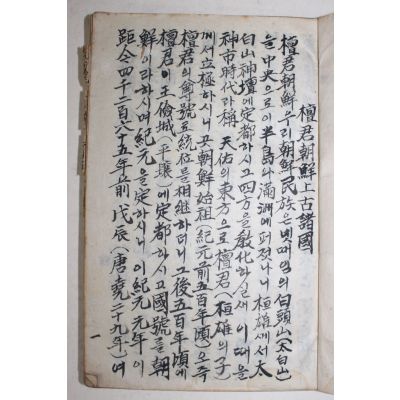 檀君朝鮮上古諸國
檀君朝鮮우리朝鮮民族은넷때임의白頭山(太白山)
을中央으로이半島와滿洲에퍼젓나니桓雄께서太
白山神壇에定都하시고四方을敎化하실새이때을
神市時代라稱 天佑의東方으로檀君(桓雄의子)
께서立極하시니곳朝鮮始祖紀元前五百年頃)으즉
檀君의尊號로統位를相繼하더니그後五百年頃에
檀君이王儉城(平壤)에定都하시고國號를朝
鮮이라하시며紀元을定하시니이紀元元年이
距今四千二百六十五年前 戊辰(唐堯二十九年)녀
一